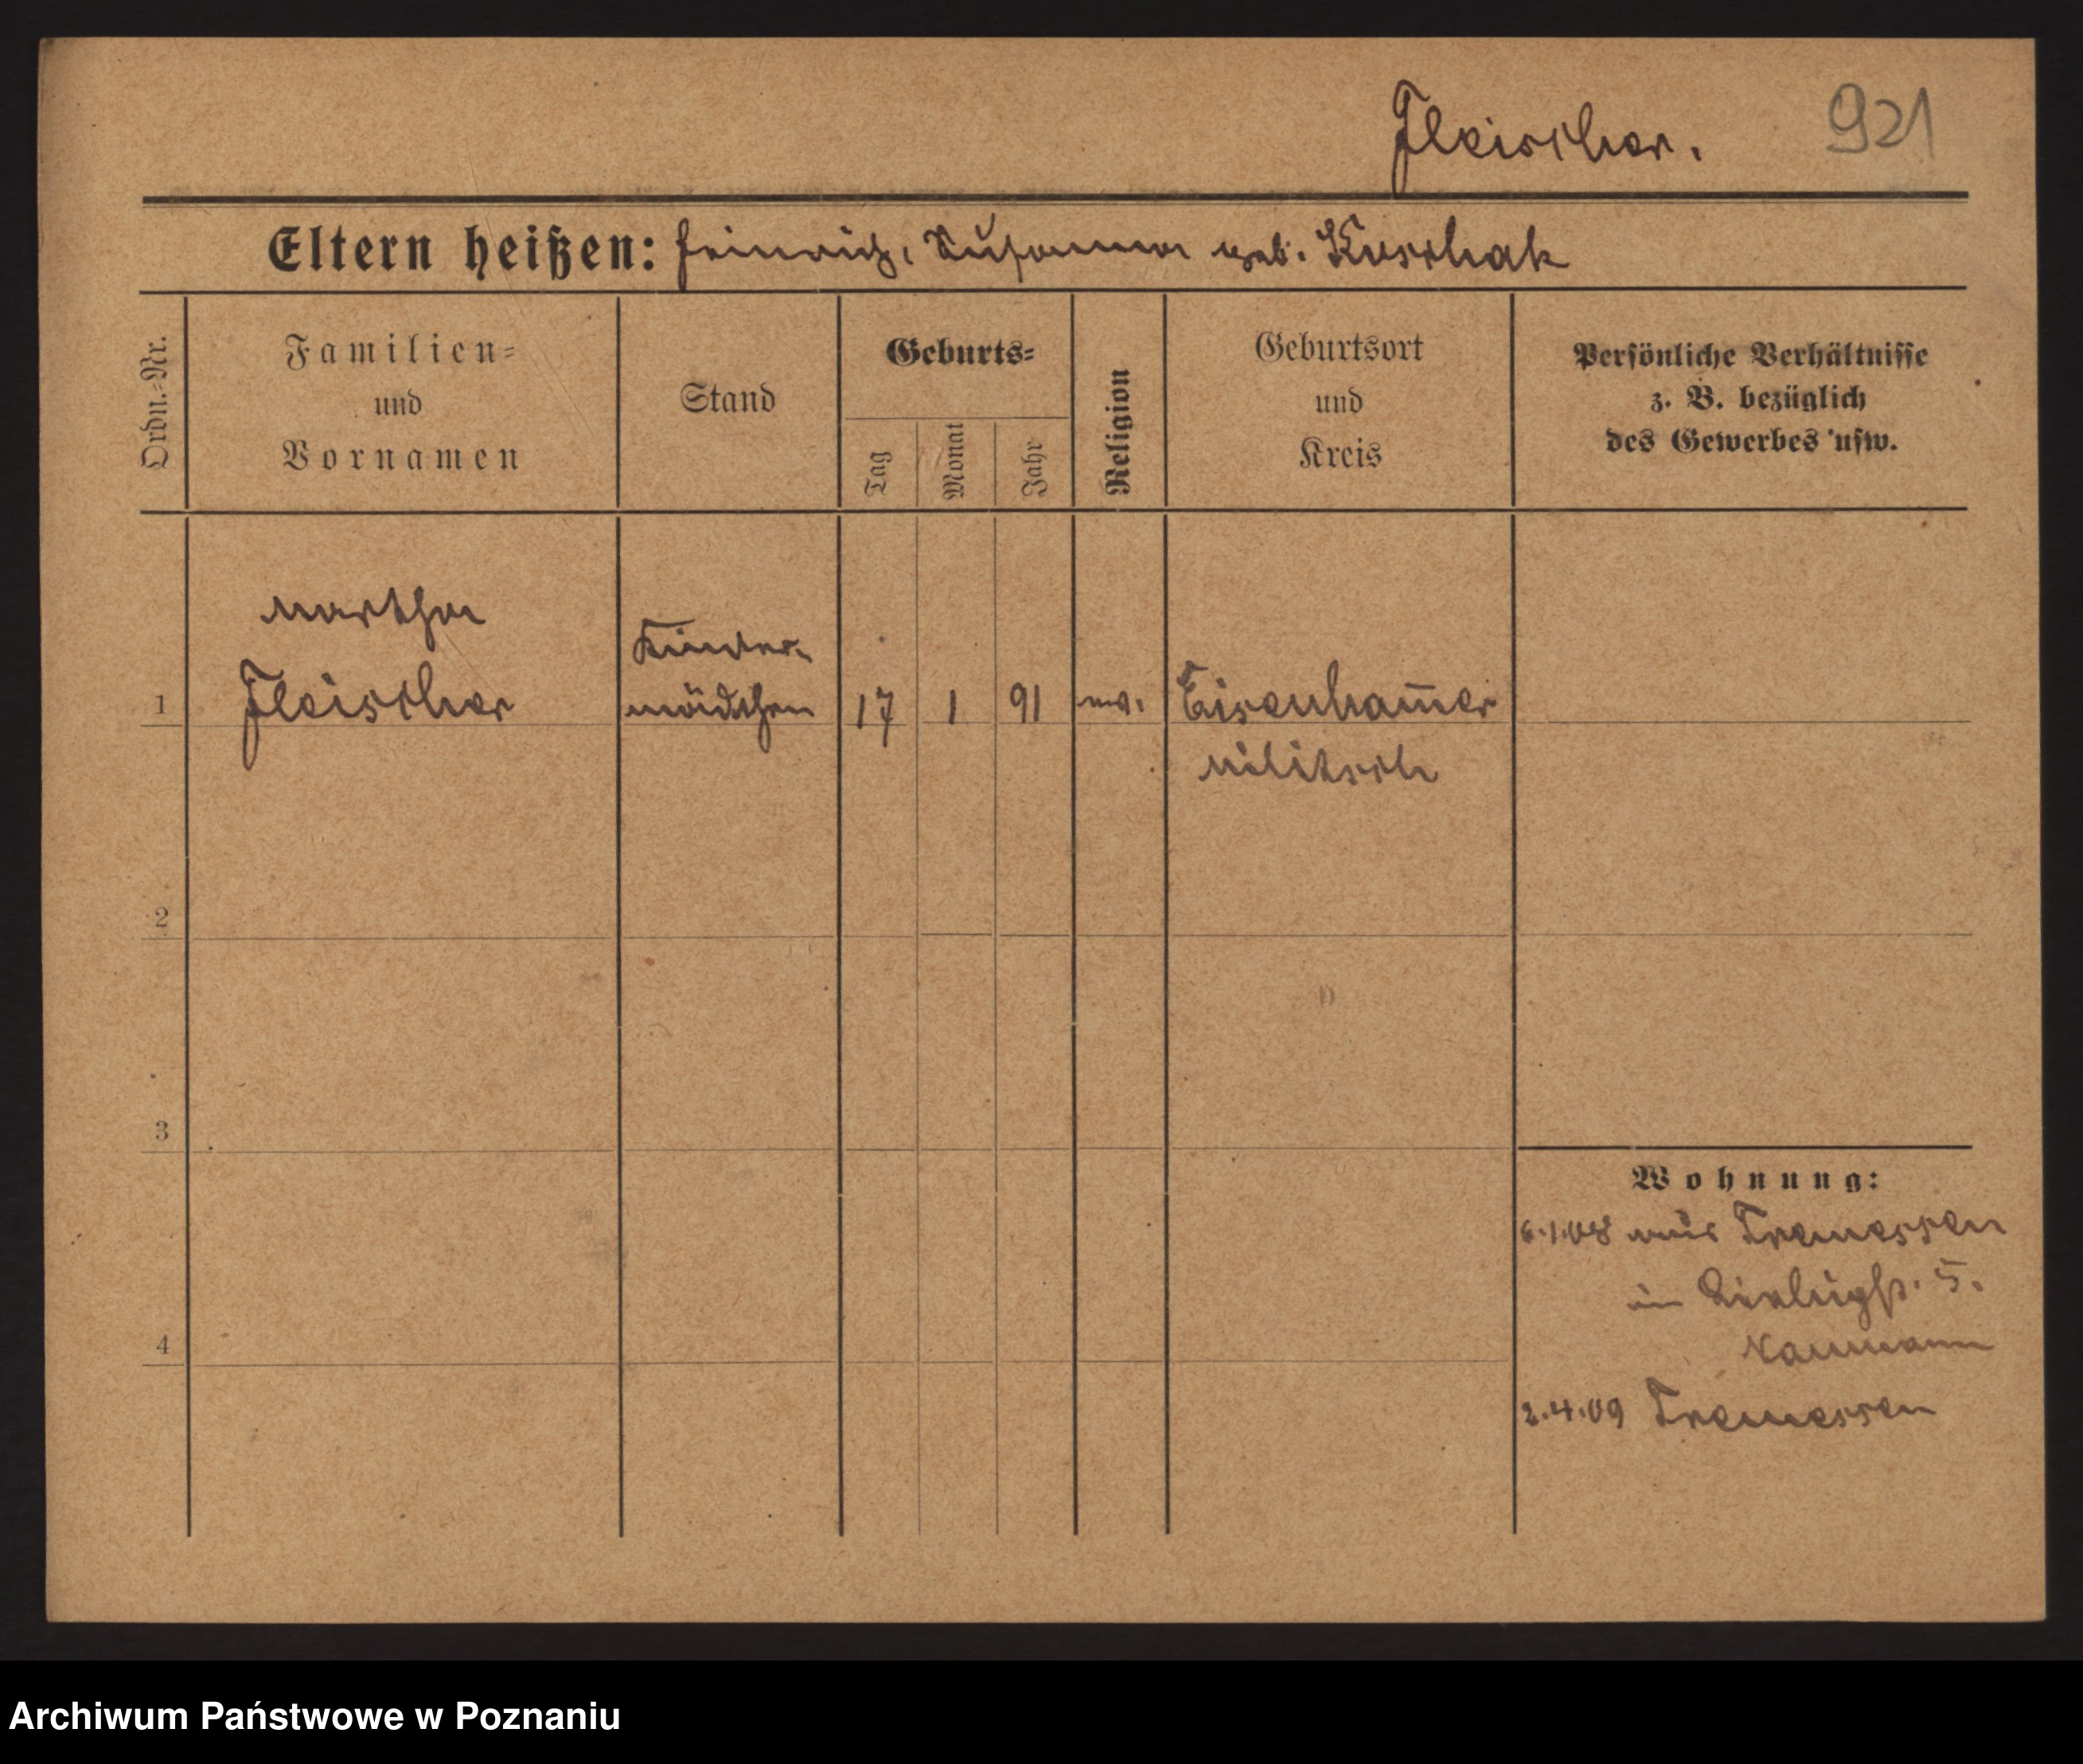 Fleischer. 921
Eltern heißen: Heinrich, Susanna geb. Kuschak
Ordn.-Nr.
Familien-
und
Vornamen
Stand
Geburts-
Tag
Monat
Jahr
Religion
Geburtsort
und
Kreis
Persönliche Verhältnisse
z. B. bezüglich
des Gewerbes usw.
Martha
Fleischer
Kinder-
mädchen
1
17
1
91
Eisenham̅er
Militsch
2
3
4
Wohnung:
6.1.08 aus Tremessen
in 5.
Naumann
2.4.09 Tremessen
Archiwum Państwowe w Poznaniu